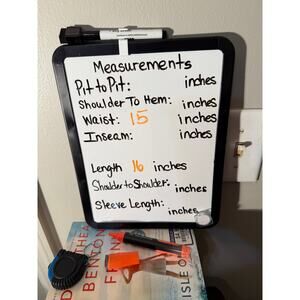 Measurements
Pit to Pit: inches
Shoulder To Hem: inches
Waist: 15 inches
Inseam: inches
Length 16 inches
Shoulder to Shoulder: inches
Sleeve Length: inches
BENTON
ISLE O